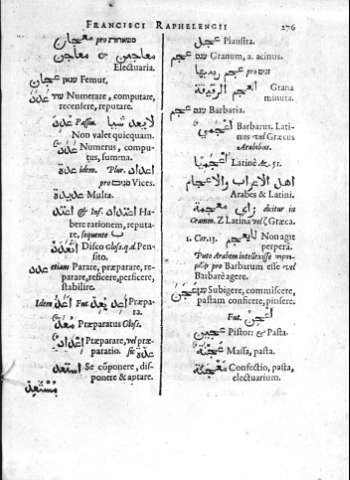 FRANCISCI RAPHELENGII 276
معجان pro
معاجين & معاجن
Electuaria.
عجان Femur,
عدّ Numerare, computare,
recensere, reputare.
لا يعد شيا Passiva
Non valet quicquam.
عدد Numerus, compu-
tus, summa.
اعداد Plur. idem.
pro Vices.
عديدة Multa.
اعتد & Inf. اعتداد Ha-
bere rationem, reputa-
re, sequente
Disco Gloss. q.d. Pen-
sito.
etiam Parare, præparare, re-
parare, reficere, perficere,
stabilire.
Idem اعدّ Fut. Præpa-
ra.
Præparatus Gloss.
Præparare, vel præ-
paratio. sic عدة
استعد Se cōponere, dis-
ponere & aptare.
مستعد
عجل Plaustra.
عجم Granum, a. acinus.
pro
Grana
minuta.
عجم Barbaria.
اعجمي Barbarus. Lati-
nus vel Græcus
Arabibus.
Latinè &. 51.
اهل الاعراب والاعجام
Arabes & Latini.
زاي معجمة dicitur in
Gramm. Z Latina vel Græca.
1. Cor. 13. Non agit
perperā.
Puto Arabem intellexisse
pro Barbarum esse vel
Barbarè agere.
عجن Subigere, commiscere,
pastam conficere, pinsere.
Fut. اعجن
عجين Pistor: & Pasta.
عجنة Massa, pasta.
معجنة Confectio, pasta,
electuarium.